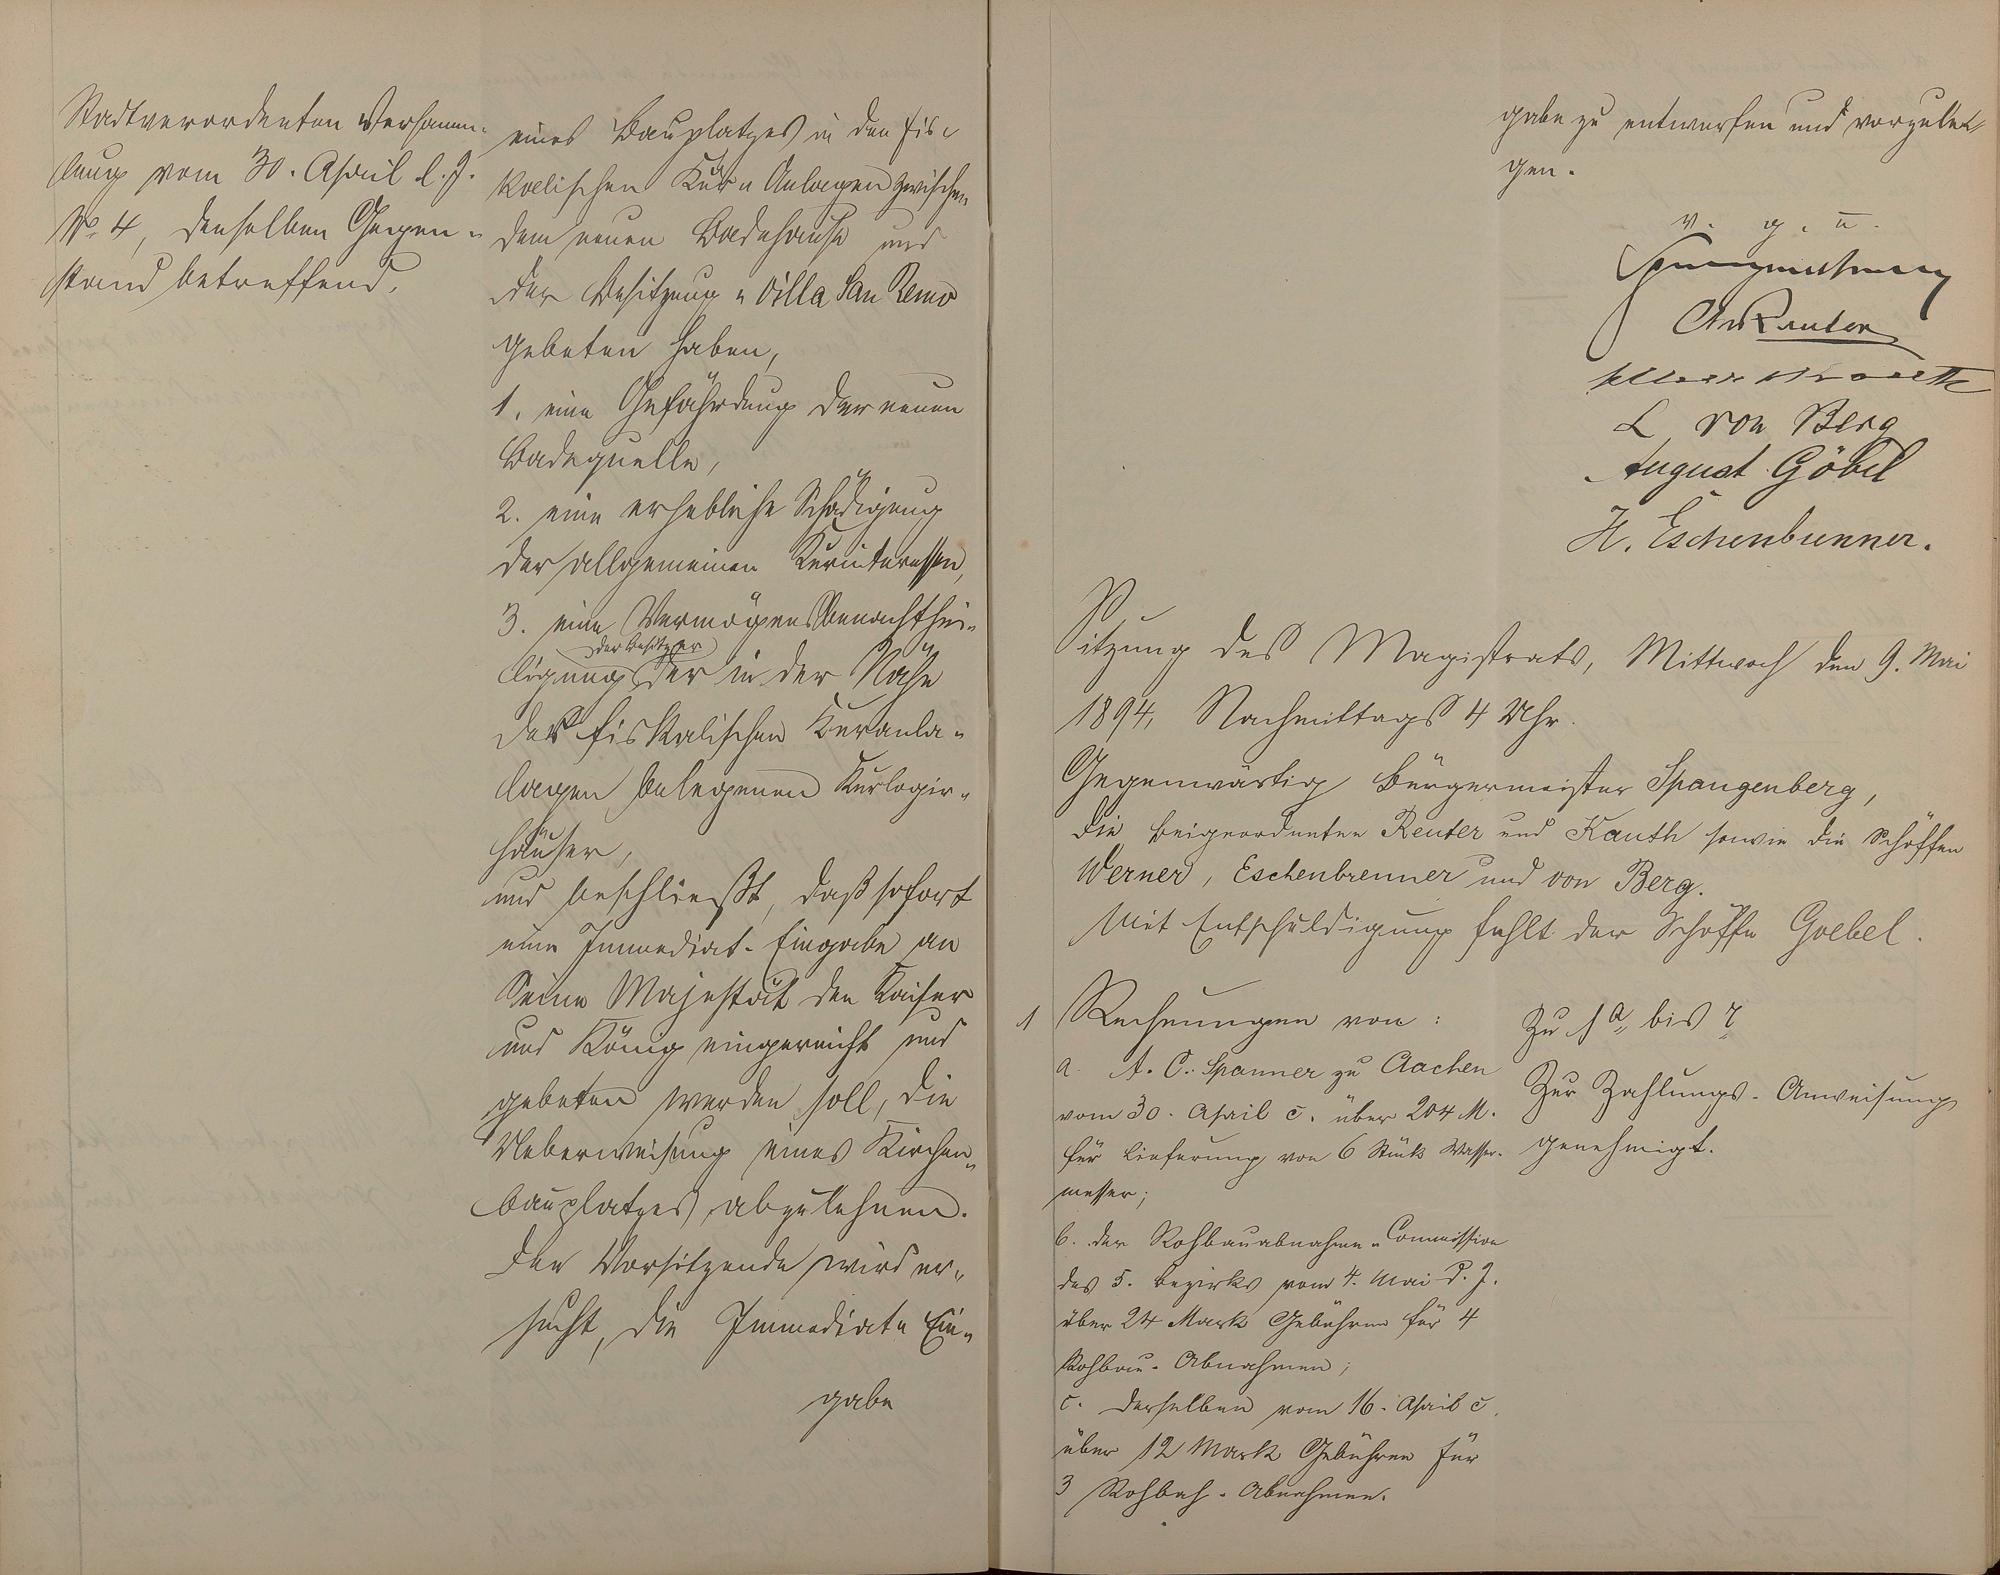 Stadtverordneten Versamm-
lung vom 30. April d. J.
No. 4, denselben Gegen-
stand betreffend.
eines Bauplatzes in den fis-
kalischen Kur-Anlagen zwischen
dem neuen Badehause und
der Besitzung "Villa San Remo
gebeten haben,
1. eine Gefährdung der neuen
Badequelle,
2. eine erhebliche Schädigung
der allgemeinen Kurinteressen,
3. eine Vermögensbenachthei-
der Besitzer
ligung der in der Nähe
der fiskalischen Kuranla-
lagen belegenen Kurlogir-
häuser,
und beschließt, daß sofort
eine Immediat-Eingabe an
Seine Majestät den Kaiser
und König eingereicht und
gebeten werden soll, die
Ueberweisung eines Kirchen-
bauplatzes abzulehnen.
Der Vorsitzende wird er-
sucht, die Immediat-Ein-
gabe
gabe zu entwerfen und vorzule-
gen.
v. g. u.
Spangenberg
Reuter
Kauth
L von Berg
August Göbel
H. Eschenbrenner.
Sitzung des Magistrats, Mittwoch den 9. Mai
1894, Nachmittags 4 Uhr.
Gegenwärtig Bürgermeister Spangenberg,
die Beigeordneten Reuter und Kauth sowie die Schöffen
Werner, Eschenbrenner und von Berg.
Mit Entschuldigung fehlt der Schöffe Goebel.
1 Rechnungen von:
a. A. C. Spanner zu Aachen
vom 30. April c. über 204 M.
für Lieferung von 6 Stück Wasser-
messer;
b. der Rohbauabnahme-Commission
des 5. Bezirks vom 4. Mai d. J.
über 24 Mark Gebühren für 4
Rohbau-Abnahmen;
c. derselben vom 16. April c.
über 12 Mark Gebühren für
3 Rohbau-Abnahmen.
Zu 1 a bis r
Zur Zahlungs-Anweisung
genehmigt.